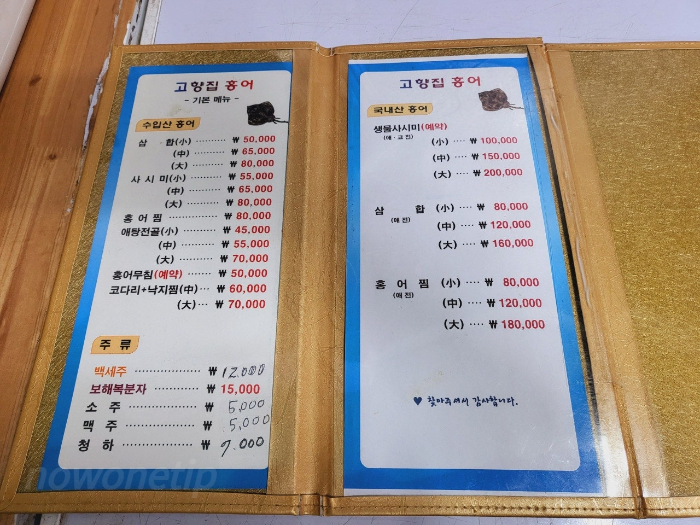 고향집 홍어
- 기본 메뉴 -
수입산 홍어
삼 합(小) .......... ₩ 50,000
(中) .......... ₩ 65,000
(大) .......... ₩ 80,000
사 시 미(小) .......... ₩ 55,000
(中) .......... ₩ 65,000
(大) .......... ₩ 80,000
홍 어 찜 .......... ₩ 80,000
애탕전골(小) .......... ₩ 45,000
(中) .......... ₩ 55,000
(大) .......... ₩ 70,000
홍어무침(예약) ...... ₩ 50,000
코다리+낙지찜(中)... ₩ 60,000
(大)... ₩ 70,000
주 류
백세주 ................ ₩ 12.000
보해복분자 ........... ₩ 15,000
소 주 ................ ₩ 5,000
맥 주 ................ ₩ 5,000
청 하 ................ ₩ 7.000
고향집 홍어
국내산 홍어
생물사시미(예약)
(애 · 교 전)
(小) .... ₩ 100,000
(中) .... ₩ 150,000
(大) .... ₩ 200,000
삼 합 (小) .... ₩ 80,000
(애 전)
(中) .... ₩ 120,000
(大) .... ₩ 160,000
홍 어 찜 (小) .... ₩ 80,000
(애 전)
(中) .... ₩ 120,000
(大) .... ₩ 180,000
♥ 찾아주셔서 감사합니다.
nowonetip